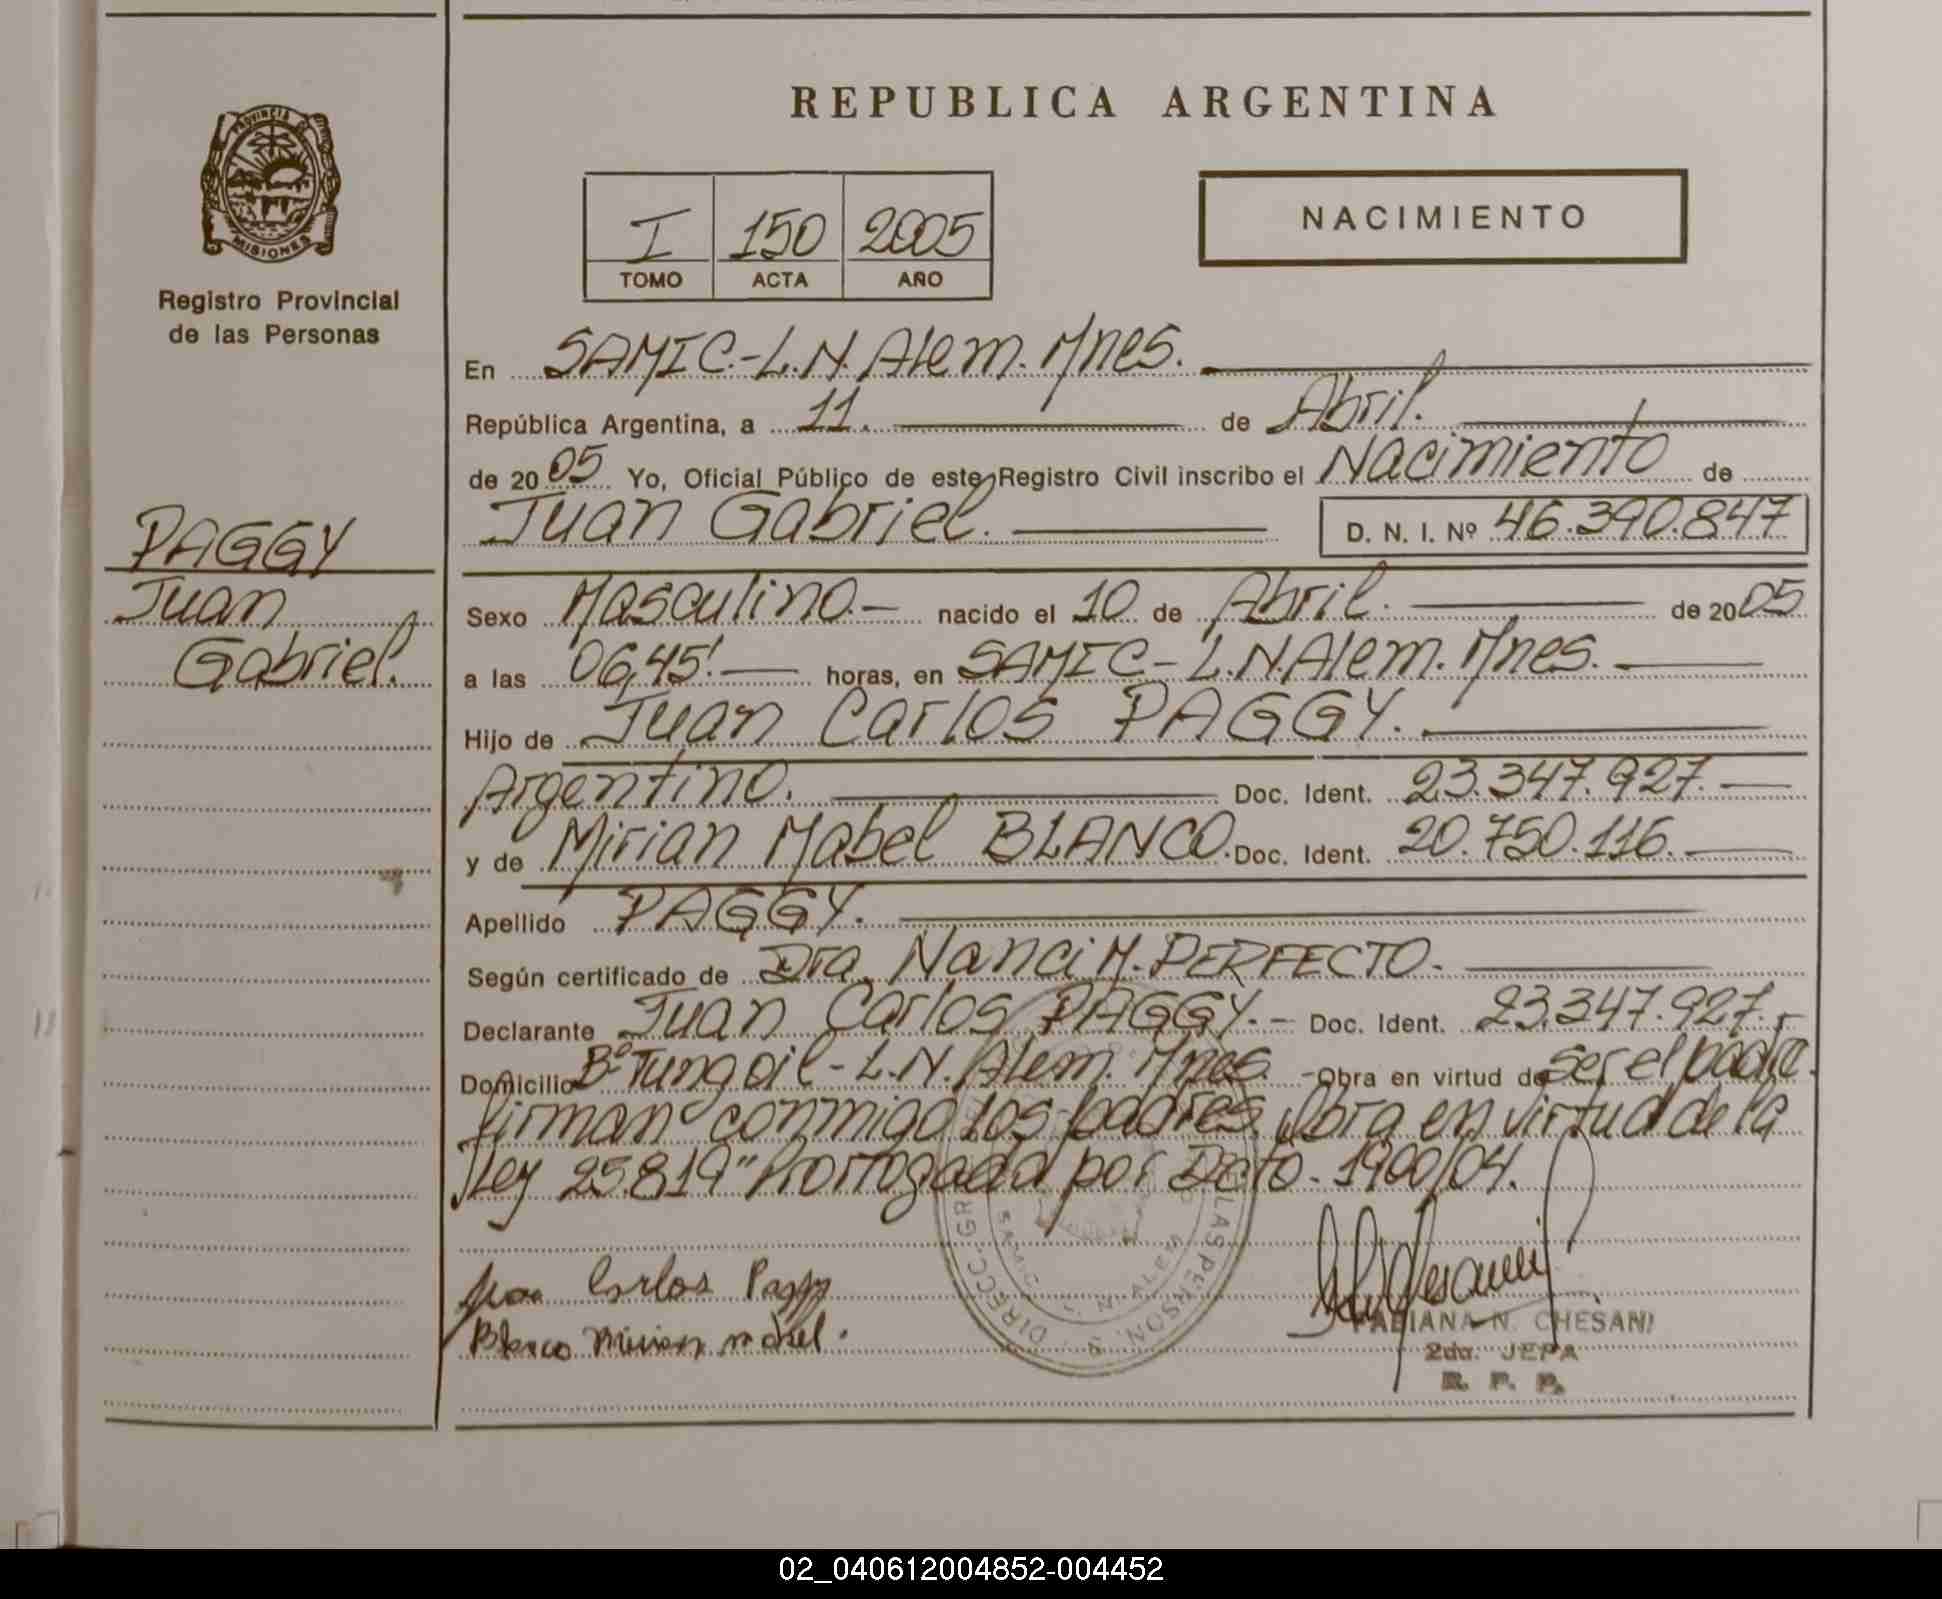 REPUBLICA ARGENTINA
PROVINCIA DE
MISIONES
Registro Provincial
de las Personas
I 150 2005
TOMO ACTA AÑO
NACIMIENTO
En SAMIC.-L.N.Alem.Mnes.
República Argentina, a 11. de Abril.
de 2005 Yo, Oficial Público de este Registro Civil inscribo el Nacimiento de
Juan Gabriel. D. N. I. Nº 46.390.847
PAGGY
Juan
Gabriel.
Sexo Masculino.- nacido el 10 de Abril. de 2005
a las 06,45'. horas, en SAMIC-L.N.Alem.Mnes.
Hijo de Juan Carlos PAGGY.
Argentino. Doc. Ident. 23.347.927.
y de Mirian Mabel BLANCO. Doc. Ident. 20.750.116.
Apellido PAGGY.
Según certificado de Dra. Nanci M. PERFECTO.
Declarante Juan Carlos PAGGY.- Doc. Ident. 23.347.927.-
Domicilio Bº Tungoil-L.N.Alem.Mnes. -Obra en virtud de ser el padre.
firman conmigo los padres. Obra en virtud de la
Ley 25.819" Prorrogada por Dcto. 1900/04.
Juan Carlos Paggy
Blanco Mirian mabel.
FABIANA N. CHESANI
2da. JEFA
R. P. P.
02_040612004852-004452